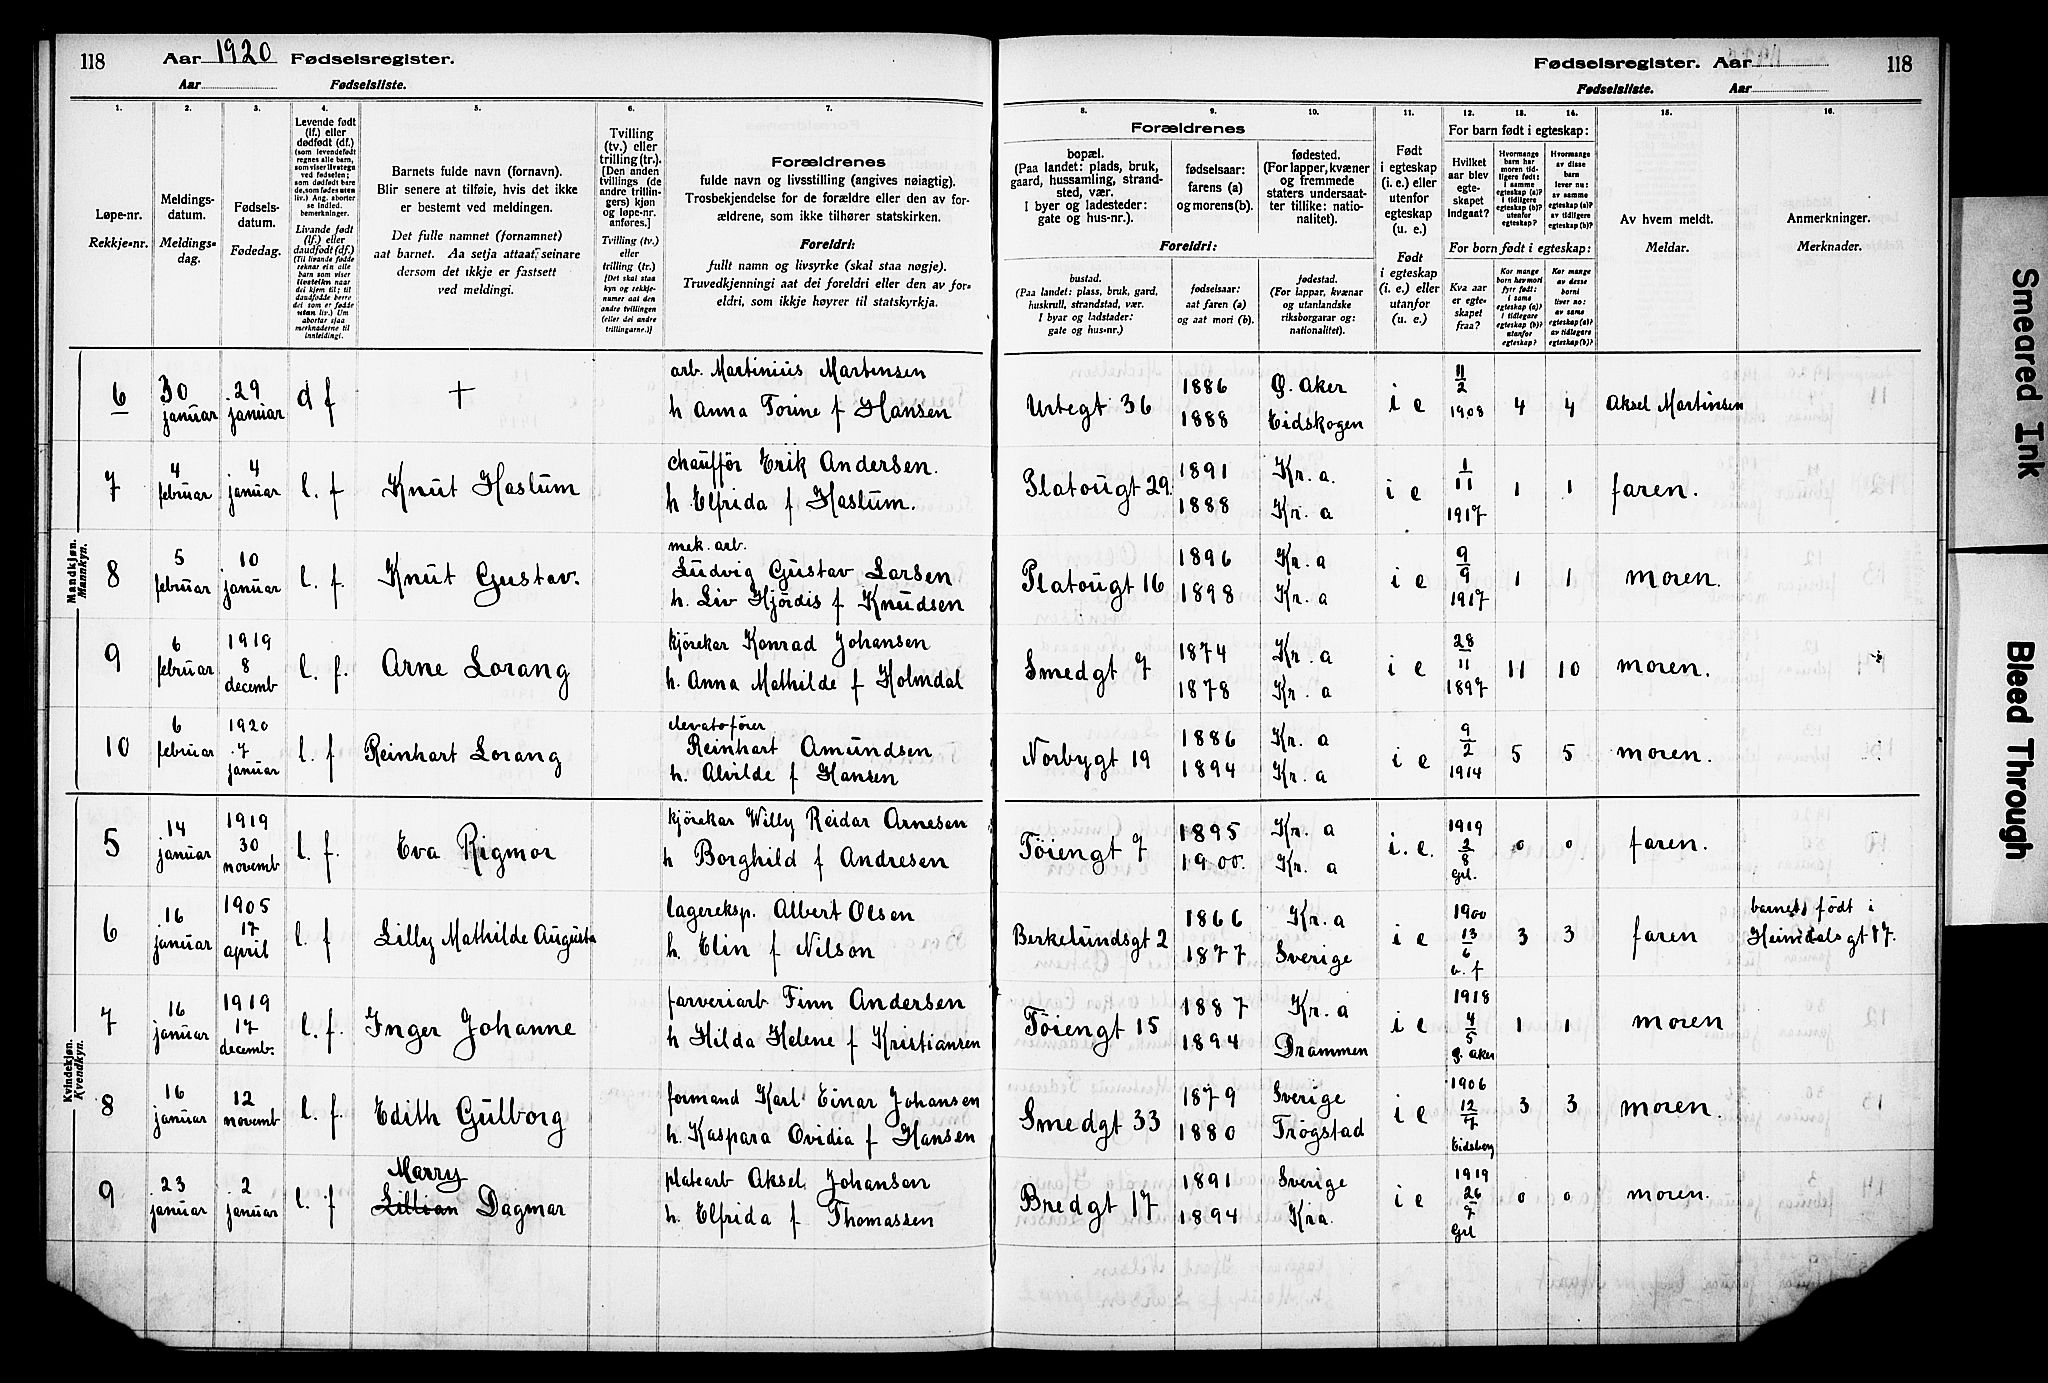 118 Aar 1920 Fødselsregister.
Aar Fødselsliste.
Fødselsregister. Aar 118
Fødselsliste. Aar
1. 2. 3. 4. 5. 6. 7.
Løpe-nr.
Rekkje-nr.
Meldings-
datum.
Meldings-
dag.
Fødsels-
datum.
Fødedag.
Levende født
(lf.) eller
dødfødt (df.)
(som levendefødt
regnes alle barn,
som viser livstegn
ved fødselen;
som dødfødt bare
de, som fødes uten
liv.) Ang. aborter
se indled.
bemerkninger.
Livande født
(lf.) eller
daudfødt (df.)
(Til livande fødde
reknar ein alle
barn som viser
livsteikn naar
dei kjem til; til
daudfødde berre
dei som er fødde
utan liv.) Um
abortar sjaa
merknaderne til
innleiding.
Barnets fulde navn (fornavn).
Blir senere at tilføie, hvis det ikke
er bestemt ved meldingen.
Det fulle namnet (fornamnet)
aat barnet. Aa setja attaat, seinare
dersom det ikkje er fastsett
ved meldingi.
Tvilling
(tv.) eller
trilling (tr.).
[Den anden
tvillings (de
andre trillin-
gers) kjøn
og løpe-nr.
anføres.]
Tvilling (tv.)
eller
trilling (tr.)
[Det skal staa
kyn og rekkje-
numer aat den
andre tvillingen
(eller dei andre
trillingarne.)]
Forældrenes
fulde navn og livsstilling (angives nøiagtig).
Trosbekjendelse for de forældre eller den av for-
ældrene, som ikke tilhører statskirken.
Foreldri:
fullt namn og livsyrke (skal staa nøgje).
Truvedkjenningi aat dei foreldri eller den av for-
eldri, som ikkje høyrer til statskyrkja.
8. 9. 10. 11. 12. 13. 14. 15. 16.
Forældrenes
bopæl.
(Paa landet: plads, bruk,
gaard, hussamling, strand-
sted, vær.
I byer og ladesteder:
gate og hus-nr.).
fødselsaar:
farens (a)
og morens (b).
fødested.
(For lapper, kvæner
og fremmede
staters undersaat-
ter tillike: natio-
nalitet).
Foreldri:
bustad.
(Paa landet: plass, bruk, gard,
huskrull, strandstad, vær.
I byar og ladstader:
gate og hus-nr.)
fødselsaar:
aat faren (a)
og aat mori (b).
fødestad.
(For lappar, kvænar
og utanlandske
riksborgarar og:
nationalitet).
Født
i egteskap
(i. e.) eller
utenfor
egteskap
(u. e.)
Født
i egteskap
(i. e.) eller
utanfor
(u. e.)
For barn født i egteskap:
Hvilket
aar blev
egte-
skapet
indgaat?
Hvormange
barn har
moren tid-
ligere født:
I samme
egteskap (a)?
I tidligere
egteskap (b)?
utenfor
egteskap?
Hvormange
av disse
barn
lever nu:
av samme
egteskap (a)?
av tidligere
egteskap (b)?
For born født i egteskap:
Kva aar
er egte-
skapet
fraa?
Kor mange
born hev mori
fyrr født:
i same
egteskap (a)?
i tidlegare
egteskap (b)?
utanfor
egteskap?
Kor mange
av desse
borni
liver no:
av same
egteskap (a)?
av tidlegare
egteskap (b)?
Av hvem meldt.
Meldar.
Anmerkninger.
Merknader.
Mandkjøn.
Mannkyn.
6 30 januar 29 januar d f † arb. Martinius Martinsen
h Anna Torine f Hansen
Urtegt 36 1886 1888 Ø. Aker Eidskogen i e 11/2 1908 4 4 Aksel Martinsen
7 4 februar 4 januar l. f Knut Haslum chauffør Erik Andersen.
h Elfrida f Haslum.
Platougt 29. 1891 1888 Kr. a. Kr. a i e 1/11 1917 1 1 faren.
8 5 februar 10 januar l. f. Knut Gustav. mek. arb.
Ludvig Gustav Larsen
h. Liv Hjørdis f Knudsen
Platougt 16 1896 1898 Kr. a Kr. a i e 9/9 1917 1 1 moren.
9 6 februar 1919 8 decemb l. f. Arne Lorang kjørekar Konrad Johansen
h. Anna Mathilde f Holmdal
Smedgt 7 1874 1878 Kr. a Kr. a i e 28/11 1897 11 10 moren.
10 6 februar 1920 7 januar l. f Reinhart Lorang elevatofører
Reinhart Amundsen
h. Alvilde f Hansen
Norbygt 19 1886 1894 Kr. a Kr. a i e 9/2 1914 5 5 moren.
Kvindekjøn.
Kvendkyn.
5 14 januar 1919 30 novemb l. f. Eva Rigmor kjørekar Willy Reidar Arnesen
h Borghild f Andresen
Tøiengt 7 1895 1900. Kr. a Kr. a i. e. 1919 2/8 Grl. 0 0 faren.
6 16 januar 1905 17 april l. f Lilly Mathilde Augusta lagereksp. Albert Olsen
h. Elin f Nilson
Berkelundsgt 2 1866 1877 Kr. a Sverige i e 1900 13/6 v. f 3 3 faren barnet født i
Heimdalsgt 17.
7 16 januar 1919 17 decemb. l. f. Inger Johanne farveriarb Finn Andersen
h Hilda Helene f Kristiansen
Tøiengt 15 1887 1894 Kr. a Drammen i e 1918 4/5 Ø. aker 1 1 moren
8 16 januar 12 novemb l. f. Edith Gulborg formand Karl Einar Johansen
h. Kaspara Ovidia f Hansen
Smedgt 33 1879 1880 Sverige Trøgstad i e 1906 12/7 Eidsberg 3 3 moren.
9 23 januar 2 januar l. f Marry
Lillian Dagmar platearb Aksel Johanson
h. Elfrida f Thomassen
Bredgt 17 1891 1894 Sverige Kra. i e 1919 26/7 Grl 0 0 moren.
Smeared Ink
Bleed Through